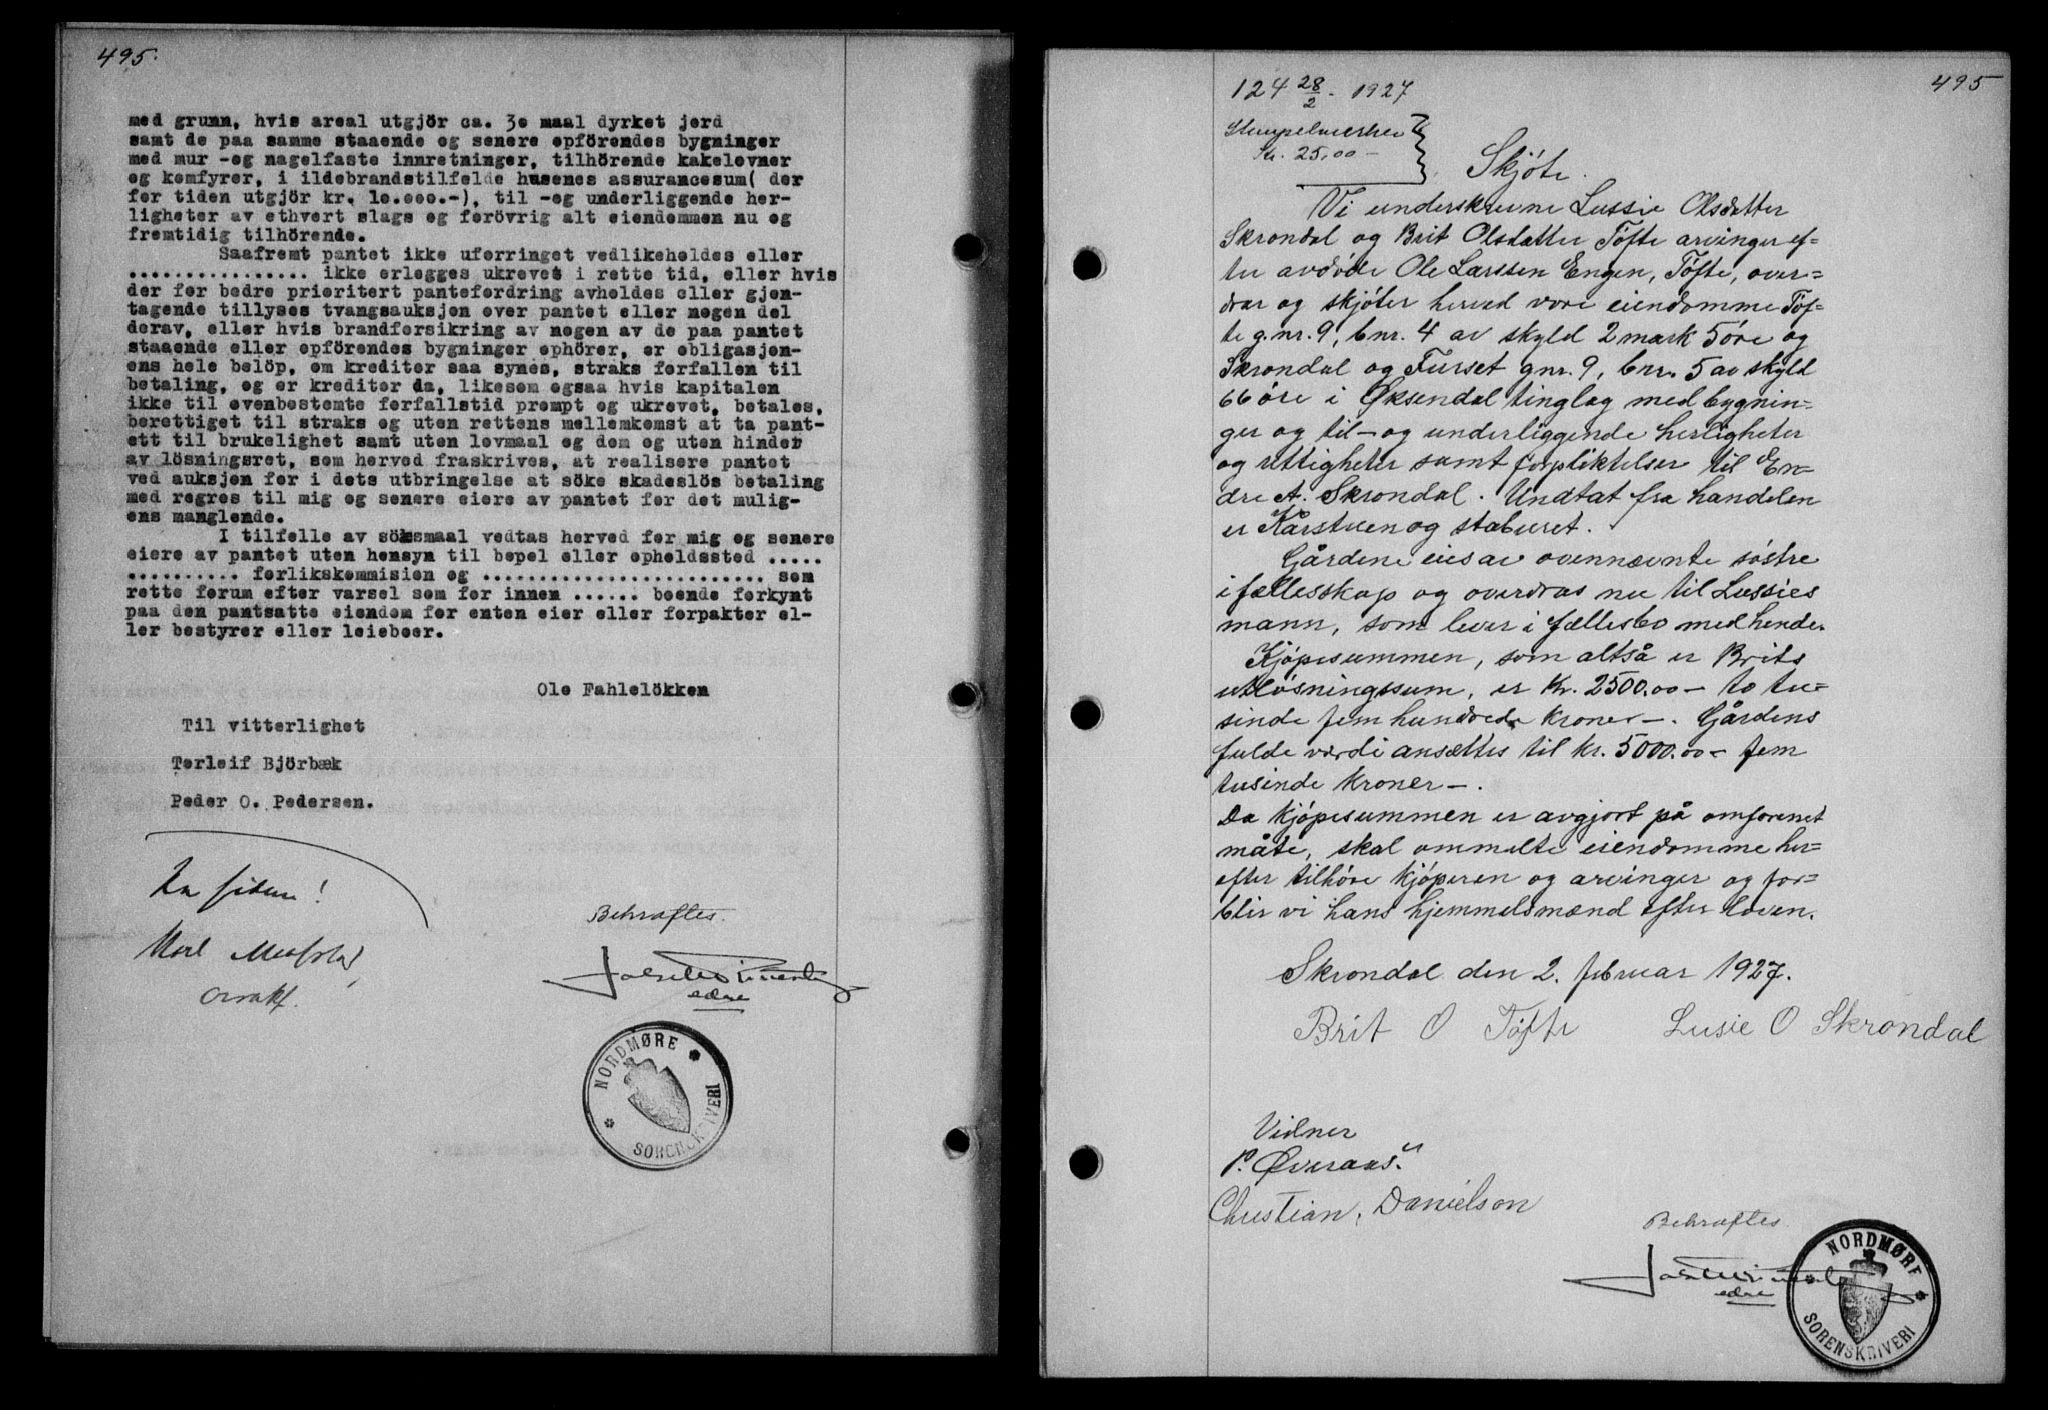 495.
med grunn, hvis areal utgjör ca. 3o maal dyrket jord
samt de paa samme staaende og senere opförendes bygninger
med mur -og nagelfaste innretninger, tilhörende kakelovner
og komfyrer, i ildebrandstilfelde husenes assurancesum( der
for tiden utgjör kr. lo.ooo.-), til -og underliggende her-
ligheter av ethvert slags og forövrig alt eiendommen nu og
fremtidig tilhörende.
Saafremt pantet ikke uforringet vedlikeholdes eller
................ ikke erlegges ukrevet i rette tid, eller hvis
der for bedre prioritert pantefordring avholdes eller gjen-
tagende tillyses tvangsauksjon over pantet eller nogen del
derav, eller hvis brandforsikring av nogen av de paa pantet
staaende eller opförendes bygninger ophörer, er obligasjon-
ens hele belöp, om kreditor saa synes, straks forfallen til
betaling, og er kreditor da, likesom ogsaa hvis kapitalen
ikke til ovenbestemte forfallstid prompt og ukrevet, betales,
berettiget til straks og uten rettens mellemkomst at ta pant-
ett til brukelighet samt uten lovmaal og dom og uten hinder
av lösningsret, som herved fraskrives, at realisere pantet
ved auksjon for i dets utbringelse at söke skadeslös betaling
med regres til mig og senere eiere av pantet for det mulig-
ens manglende.
I tilfelle av söksmaal vedtas herved for mig og senere
eiere av pantet uten hensyn til bopel eller opholdssted .....
.......... forlikskommision og ......................... som
rette forum efter varsel som for innen ...... boende forkynt
paa den pantsatte eiendom for enten eier eller forpakter el-
ler bestyrer eller leieboer.
Ole Fahlelökken
Til vitterlighet
Torleif Björbæk
Peder O. Pedersen.
Bekræftes.
NORDMØRE
SORENSKRIVERI
495
124 28/2 - 1927
Stempelmerker
Kr. 25,00 -
Skjøte.
Vi underskrevne Lussie Olsdatter
Skrondal og Brit Olsdatter Tøfte arvinger ef=
ter avdøde Ole Larssen Engen, Tøfte, over=
drar og skjøter herved vore eiendomme Tøf-
te g.nr. 9, bnr. 4 av skyld 2 mark 5 øre og
Skrondal og Furset gnr. 9, bnr. 5 av skyld
66 øre i Øksendal tinglag med bygnin=
ger og til- og underliggende herligheter
og rettigheter samt forpliktelser til En=
dre A. Skrondal. Undtat fra handelen
er Kårstuen og staburet.
Gårdene eies av ovennævnte søstre
i fællesskap og overdras nu til Lussies
mann, som lever i fællesbo med hende.
Kjøpesummen, som altså er Brits
utløsningssum, er kr. 2500.00 - to tu=
sinde fem hundrede kroner -. Gårdens
fulde værdi ansættes til kr. 5000.00 - fem
tusinde kroner -.
Da kjøpesummen er avgjort på omforenet
måte, skal ommelte eiendomme her=
efter tilhøre kjøperen og arvinger og for=
blir vi hans hjemmelsmænd efter loven.
Skrondal den 2. februar 1927.
Brit O Tøfte Lusie O Skrondal
Vidner
P. Øveraas.
Christian, Danielson
Bekræftes
NORDMØRE
SORENSKRIVERI